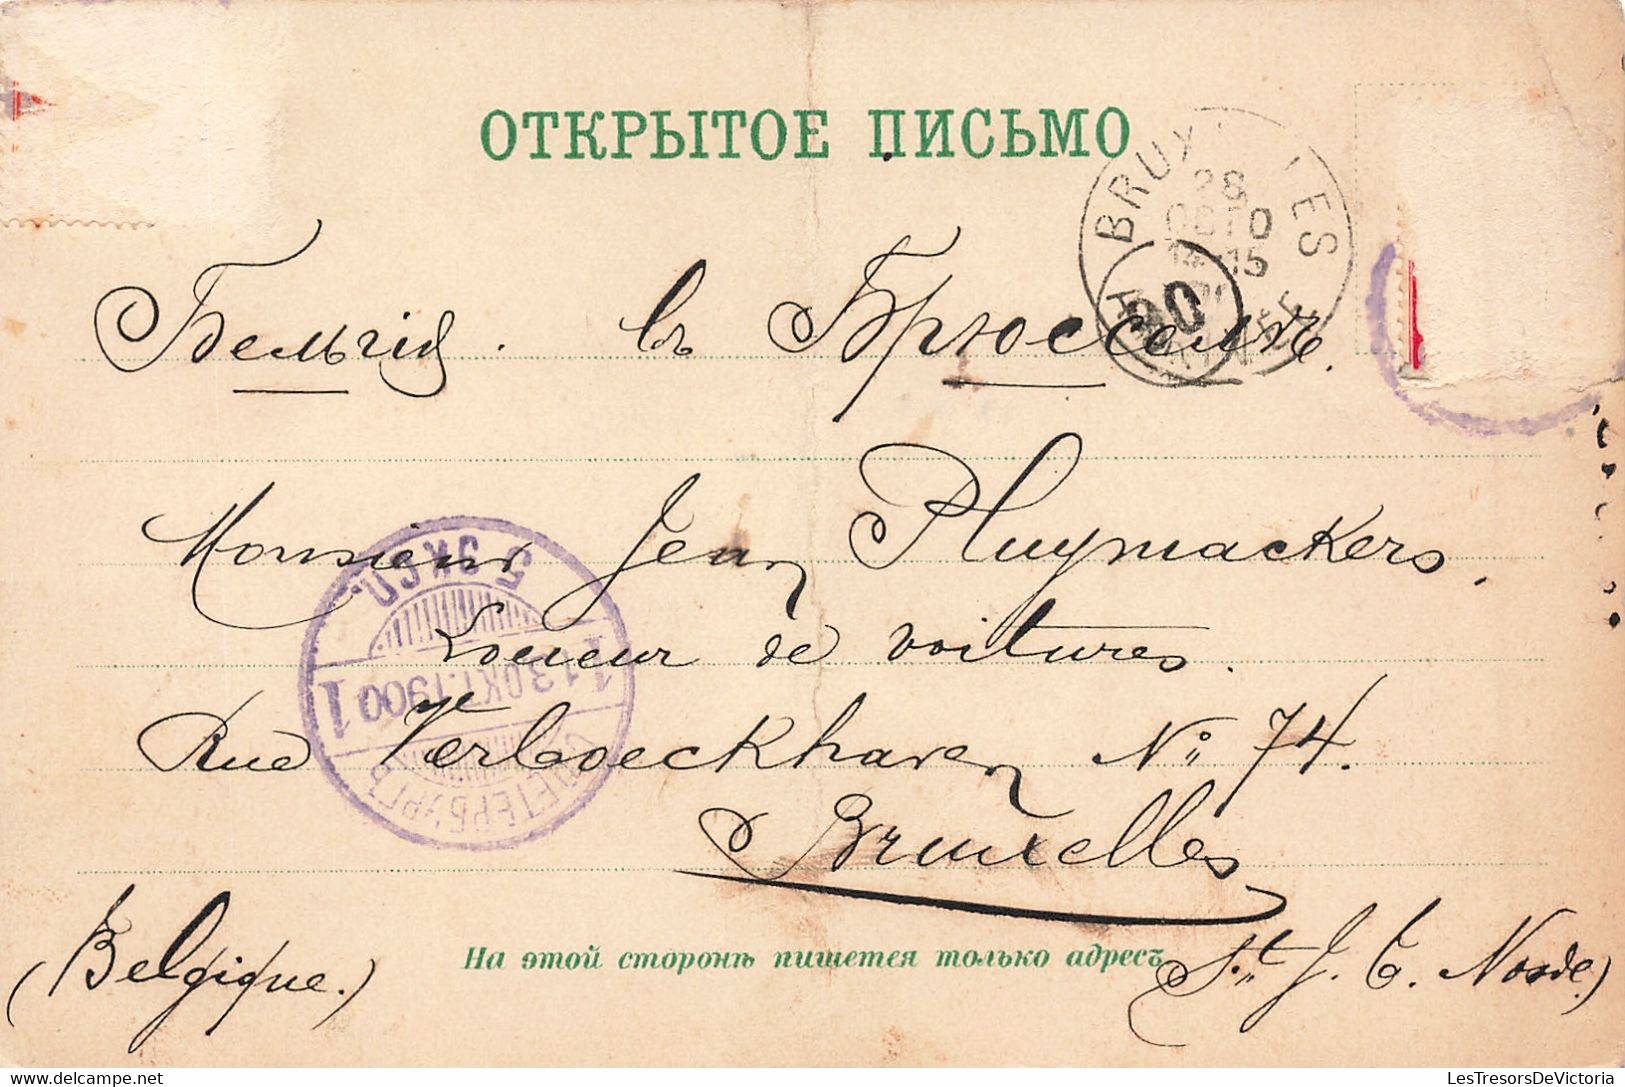 ОТКРЫТОЕ ПИСЬМО
BRUX LES
28 OCTO
15
90
Бельгія. въ Брюссель.
Monsieur Jean Pluymackers.
5 ЭКСП.
Loueur de voitures.
1 13 ОКТ. 1900 1
Rue Verboeckhaven № 74.
С. ПЕТЕРБУРГЪ
Bruxelles
(Belgique.)
На этой сторонѣ пишется только адресъ
St J. T. Noode.)
delcampe.net
LesTresorsDeVictoria